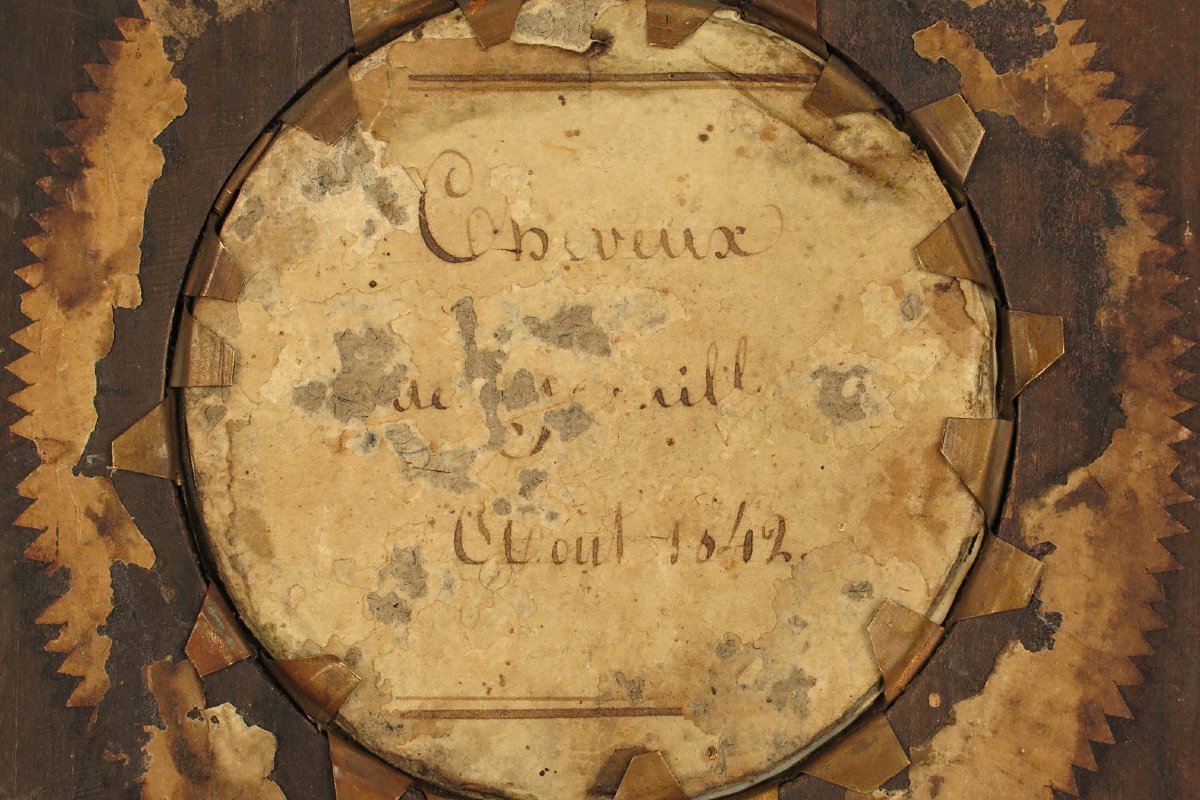 Cheveux
de
Aout 1842.